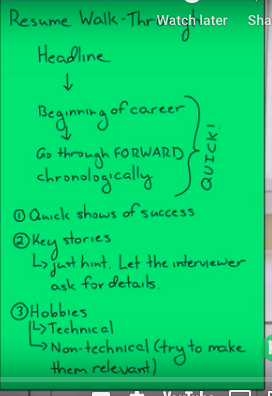 Resume Walk-Through
Watch later
Headline
Beginning of career
Go through FORWARD
chronologically
QUICK!
① Quick shows of success
② Key stories
just hint. Let the interviewer
ask for details.
③ Hobbies
Technical
Non-technical (try to make
them relevant)
YouTube